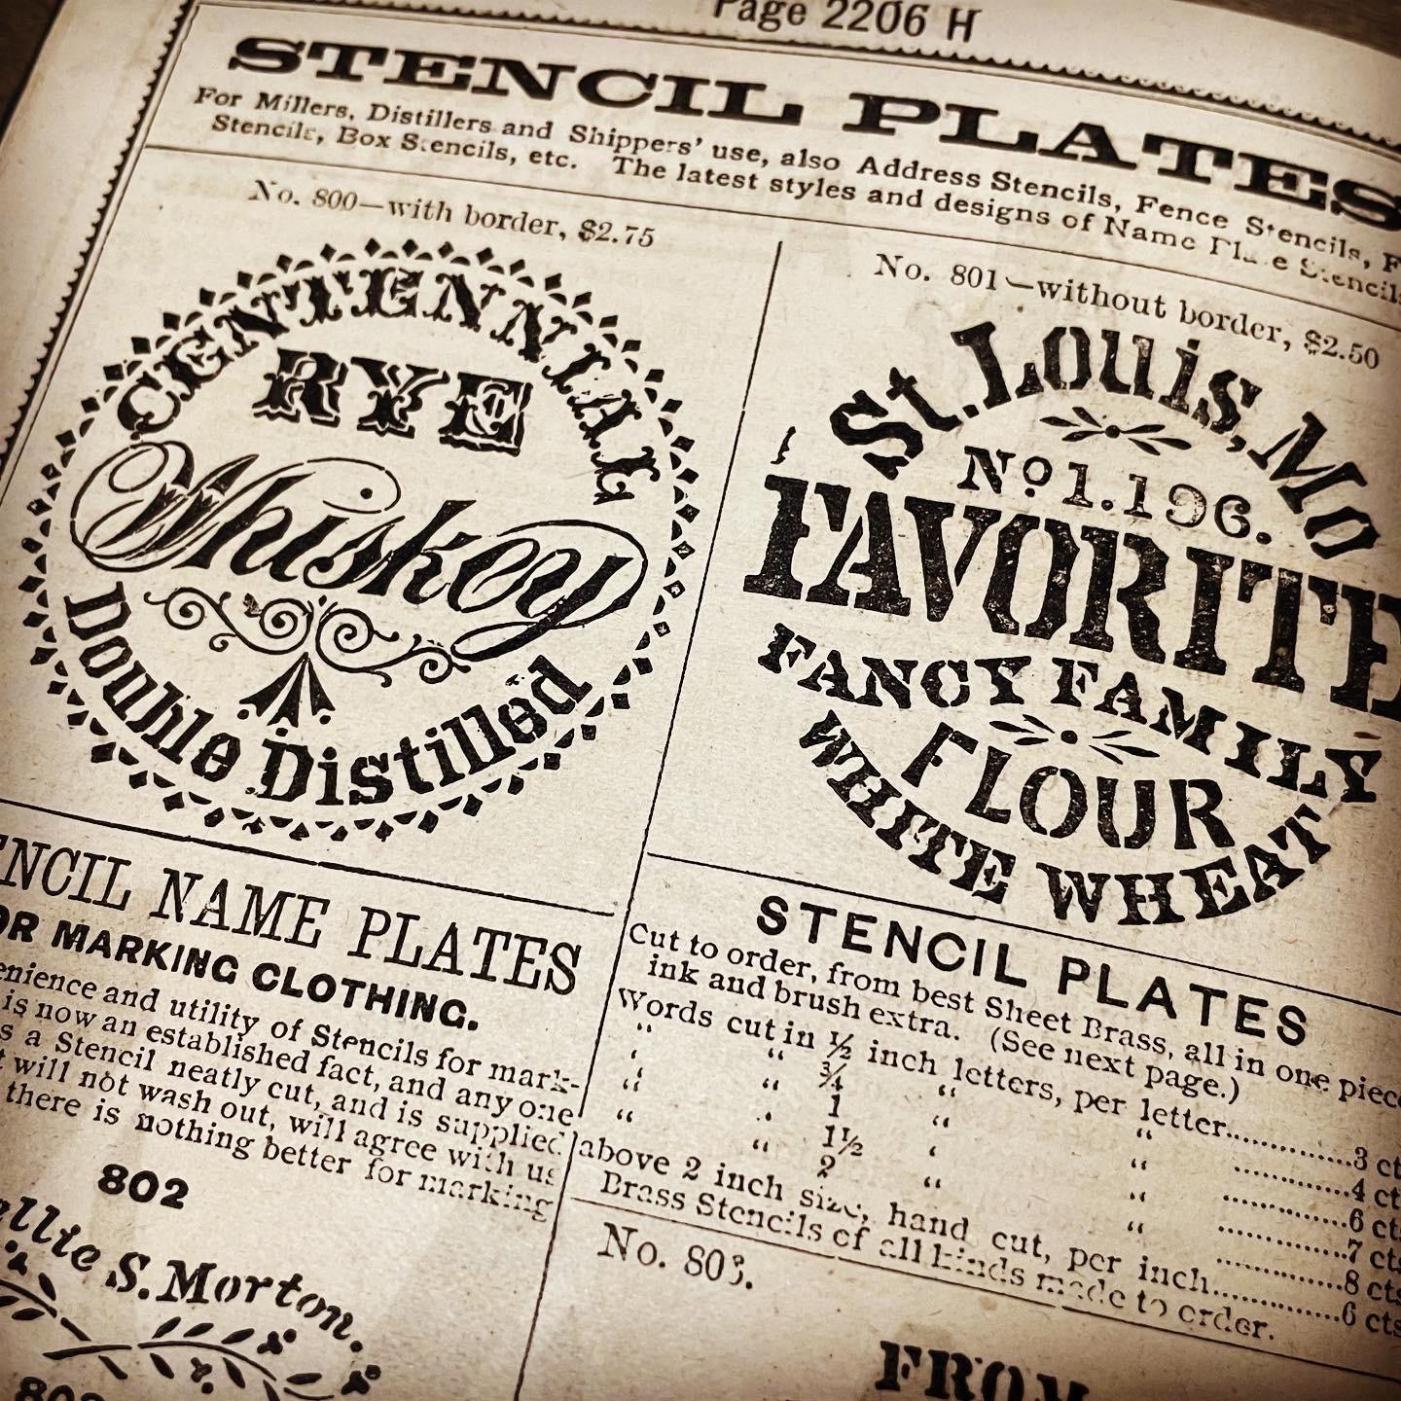 Page 2206 H
STENCIL PLATES
For Millers, Distillers and Shippers' use, also Address Stencils, Fence Stencils,
Stencils, Box Stencils, etc. The latest styles and designs of Name Plate Stencils
No. 800—with border, $2.75
CENTENNIAL
RYE
Whiskey
Double Distilled
No. 801—without border, $2.50
St. Louis, Mo
No 1.196.
FAVORITE
FANCY FAMILY
FLOUR
WHITE WHEAT
ENCIL NAME PLATES
OR MARKING CLOTHING.
enience and utility of Stencils for mark-
is now an established fact, and any one
s a Stencil neatly cut, and is supplied
t will not wash out, will agree with us
there is nothing better for marking
802
ellie S. Morton.
STENCIL PLATES
Cut to order, from best Sheet Brass, all in one piece
ink and brush extra. (See next page.)
Words cut in ½ inch letters, per letter..........3 ct
" " ¾ " " ..........4 ct
" " 1 " " ..........6 cts
" " 1½ " " ..........7 cts
" " 2 " " ..........8 cts
above 2 inch size, hand cut, per inch..........6 cts
Brass Stencils of all kinds made to order.
No. 803.
FROM